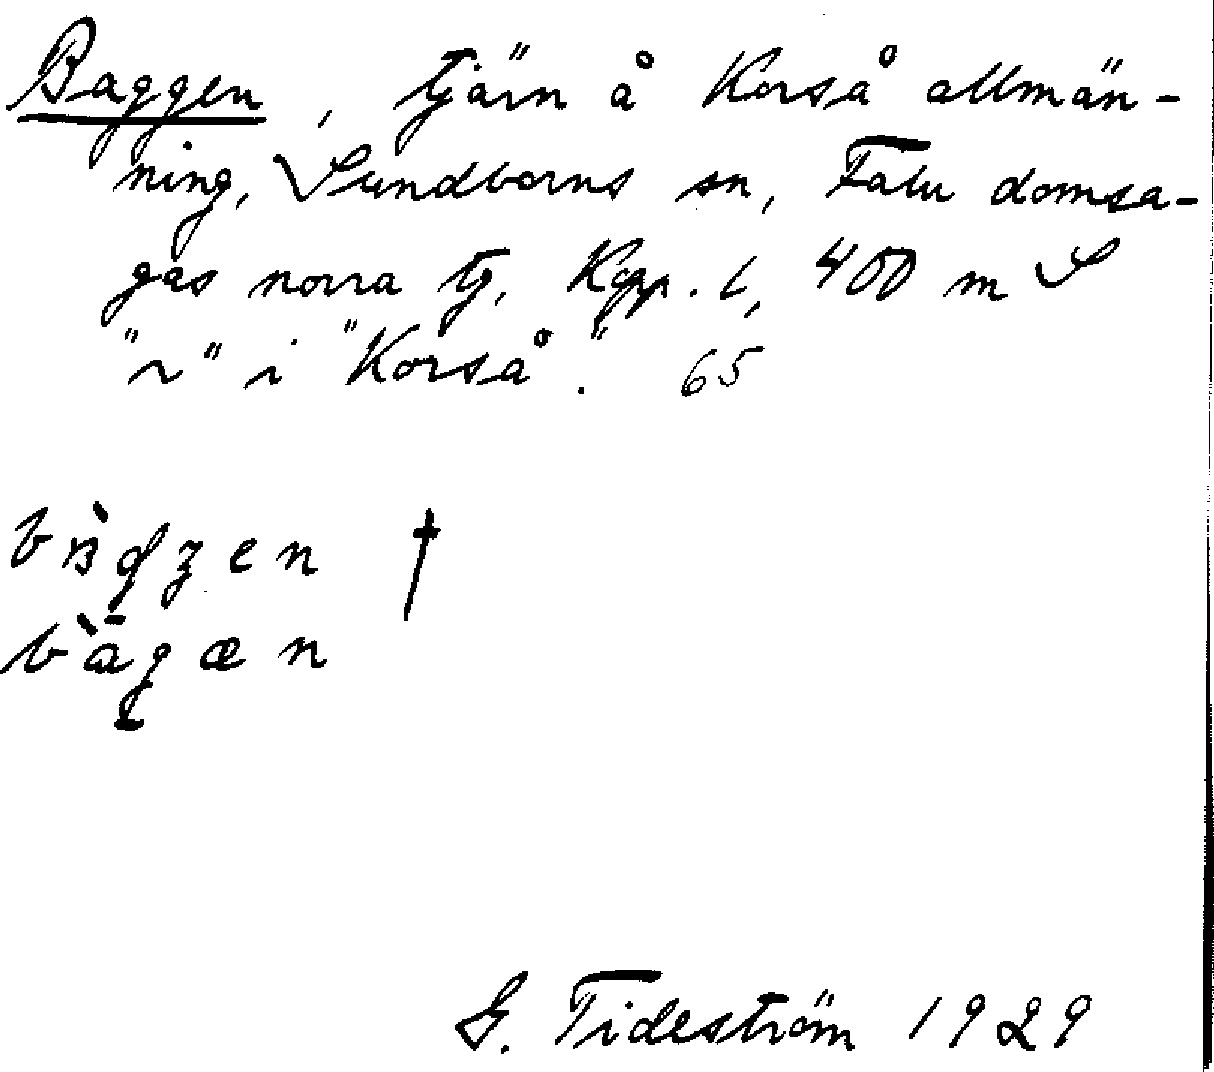 Baggen, tjärn å Korså allmän-
ning, Sundborns sn, Falu domsa-
gas norra tg, Kopp. l, 400 m S
"r" i "Korså". 65
bàgæn
G. Tideström 1929